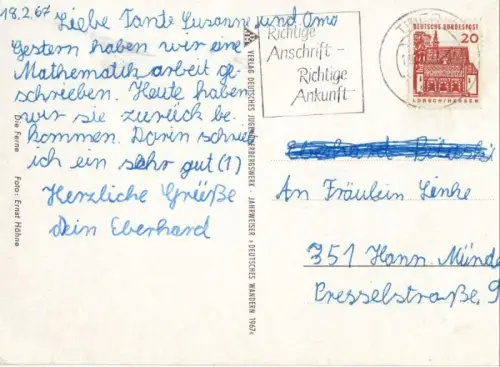 18.2.67 Liebe Tante Susanne und Omo
Gestern haben wir eine
Mathematik arbeit ge-
schrieben. Heute haben
wir sie zurück be-
kommen. Darin schrieb
ich ein sehr gut (1)
Herzliche Grüße
Dein Eberhard
Die Ferne
Foto: Ernst Hähne
VERLAG DEUTSCHES JUGENDHERBERGSWERK
JAHRWEISER » DEUTSCHES WANDERN 1967«
Richtige
Anschrift –
Richtige
Ankunft
DEUTSCHE BUNDESPOST
20
LORSCH/HESSEN
An Fräulein Linke
351 Hann. Münde
Presselstraße 9